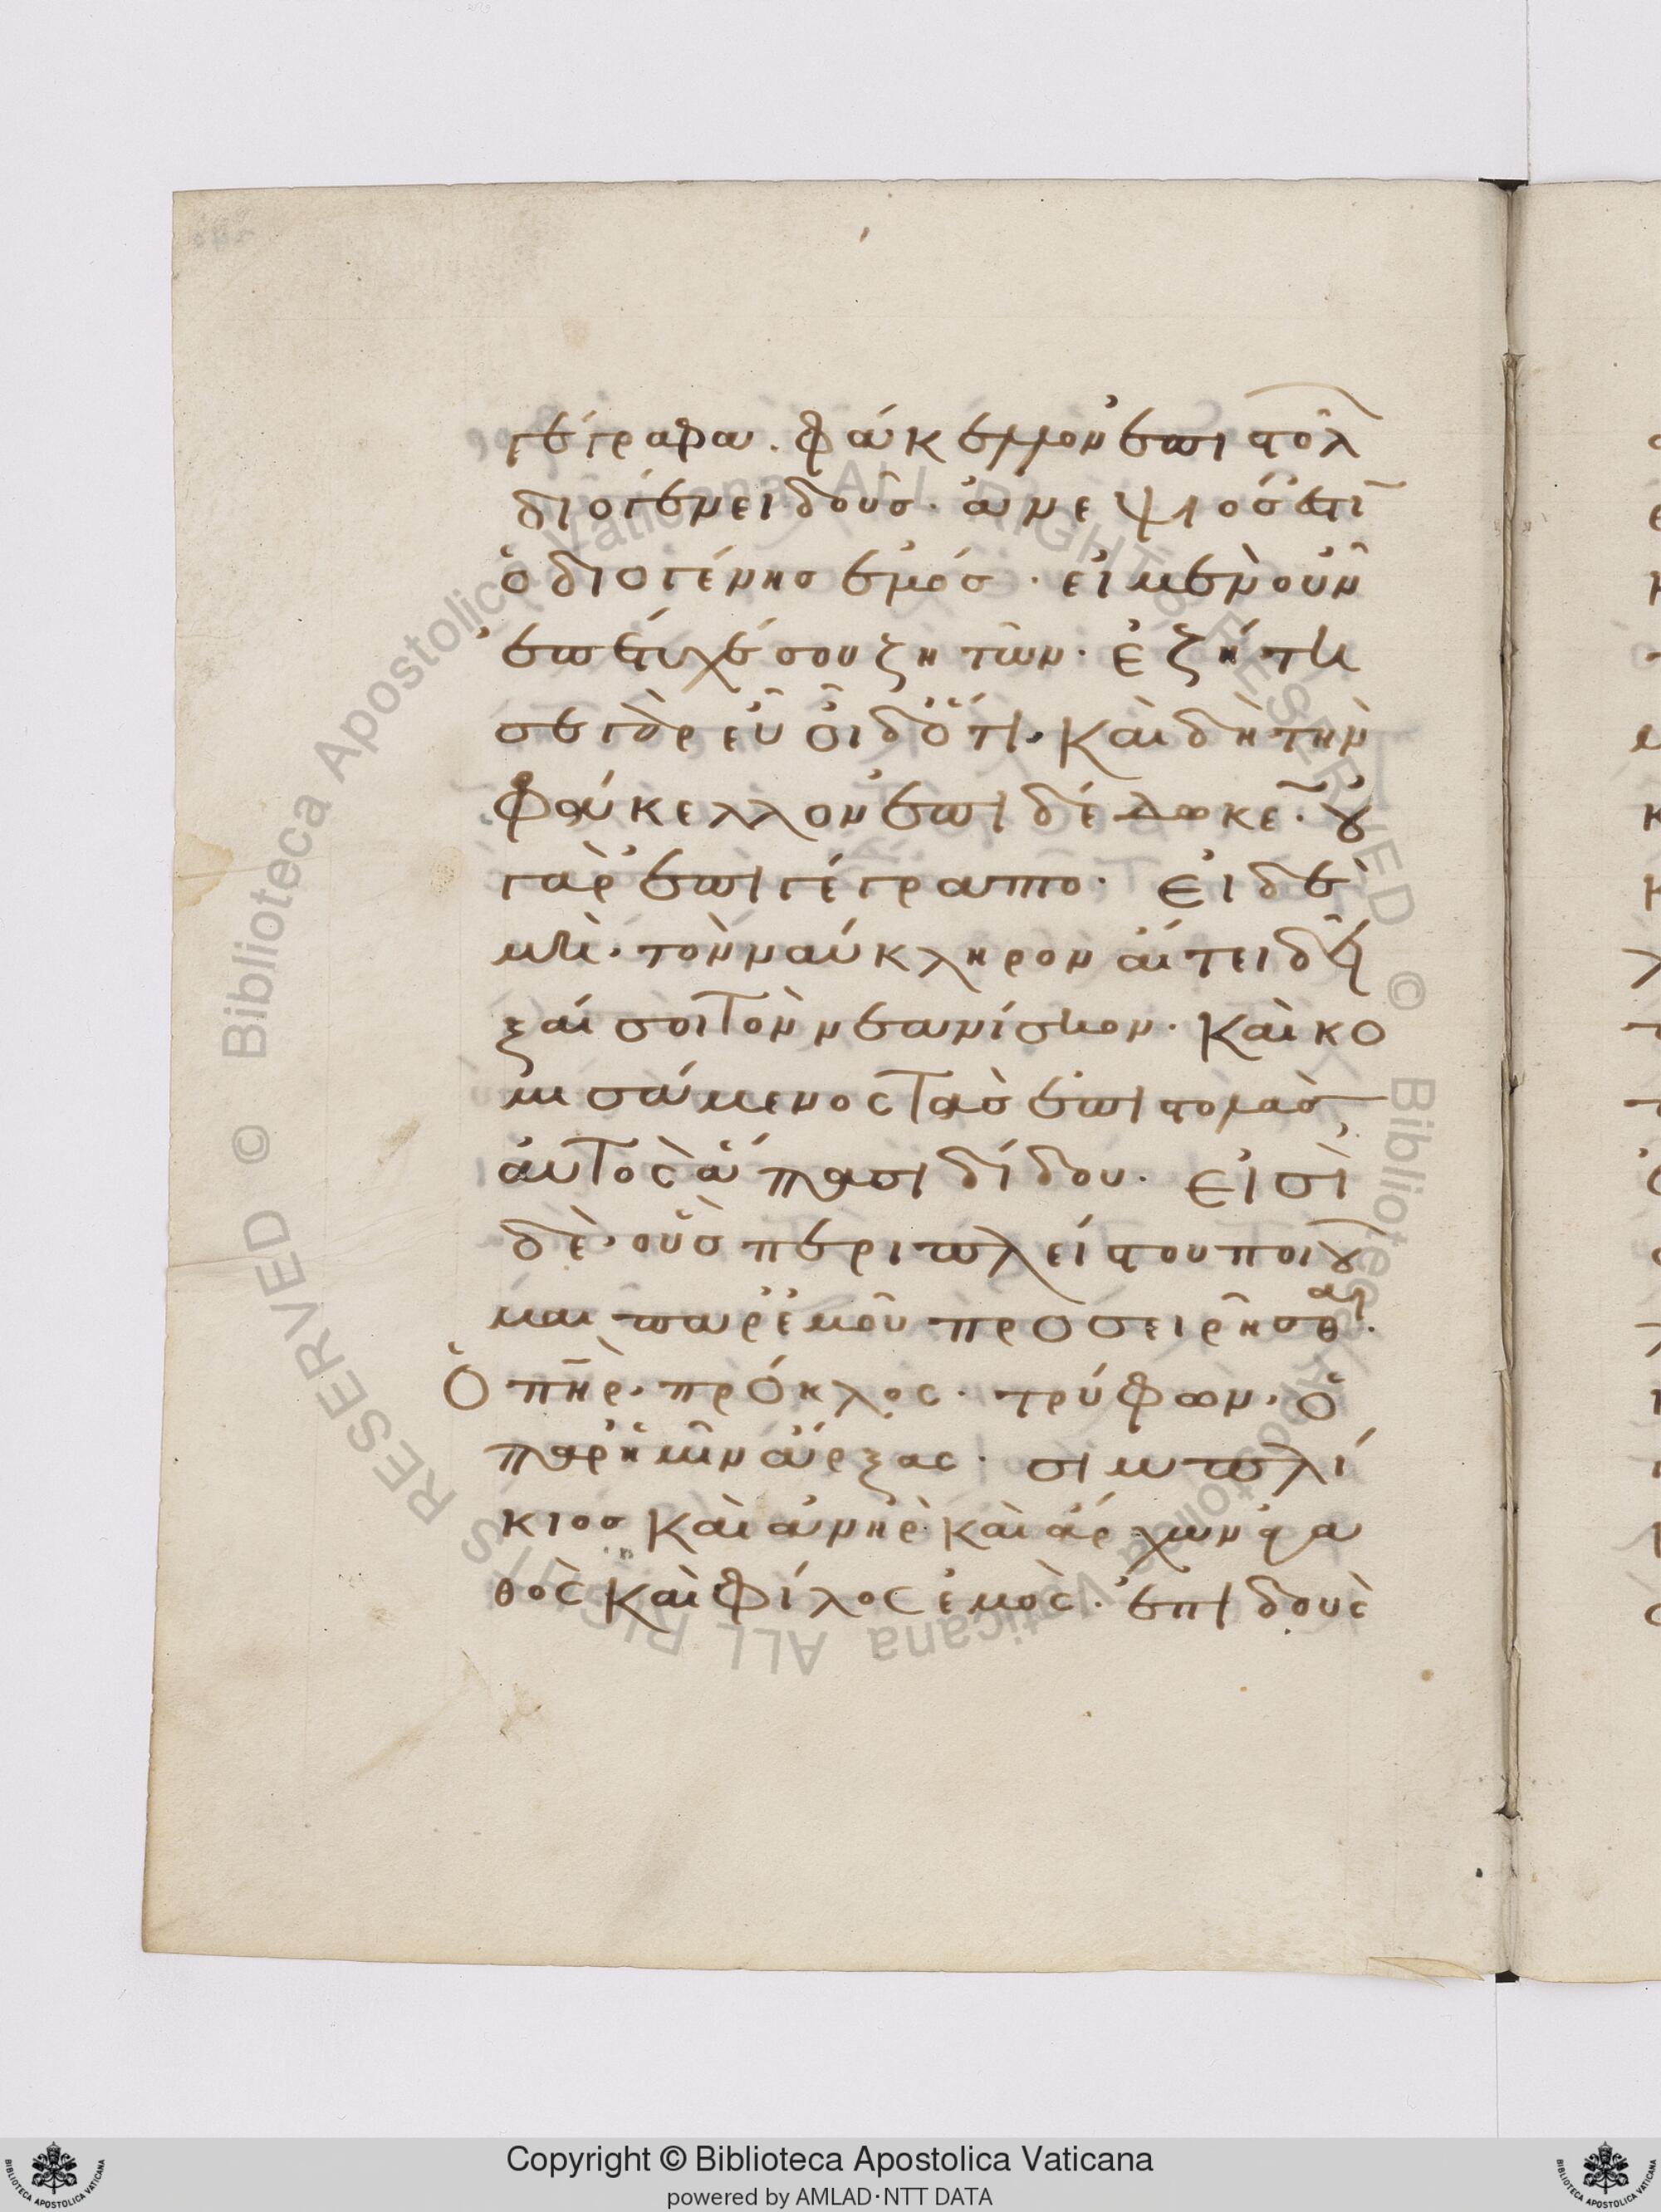 γέγραφα. φάκελλον ἐπιστολ
διογενει δοὺς. ἀνεψιός ἐστι
ὁ διογένης ἐμός. εἰ μὲν οὖν
ἐπέτυχέ σου ζητῶν. ἐζήτη
σε γὰρ εὖ οἶδ ὅτι. καὶ δὴ τὴν
φάκελλον ἐπιδέδωκεν. οὕ
γὰρ ἐπιγέγραπτο. εἰ δὲ
μὴ. τὸν ναύκληρον αἴτει δεῖ
ξαί σοι τὸν νεανίσκον. καὶ κο
μισάμενος τὰς ἐπιστολὰς
αὐτὸς ἅπασι δίδου. εἰσὶ
δὲ. οὓς περιπλείστου ποιοῦ
μαι παρ' ἐμοῦ προσειρῆσθαι.
Ὁ πηρ. πρόκλος. τρύφων. ὁ
παρ' ἡμῖν ἄρξας. σιμπλί
κιος καὶ ἀνὴρ καὶ ἄρχων ἀγα
θὸς καὶ φίλος ἐμὸς. ἐπιδοὺς
Copyright © Biblioteca Apostolica Vaticana
powered by AMLAD·NTT DATA